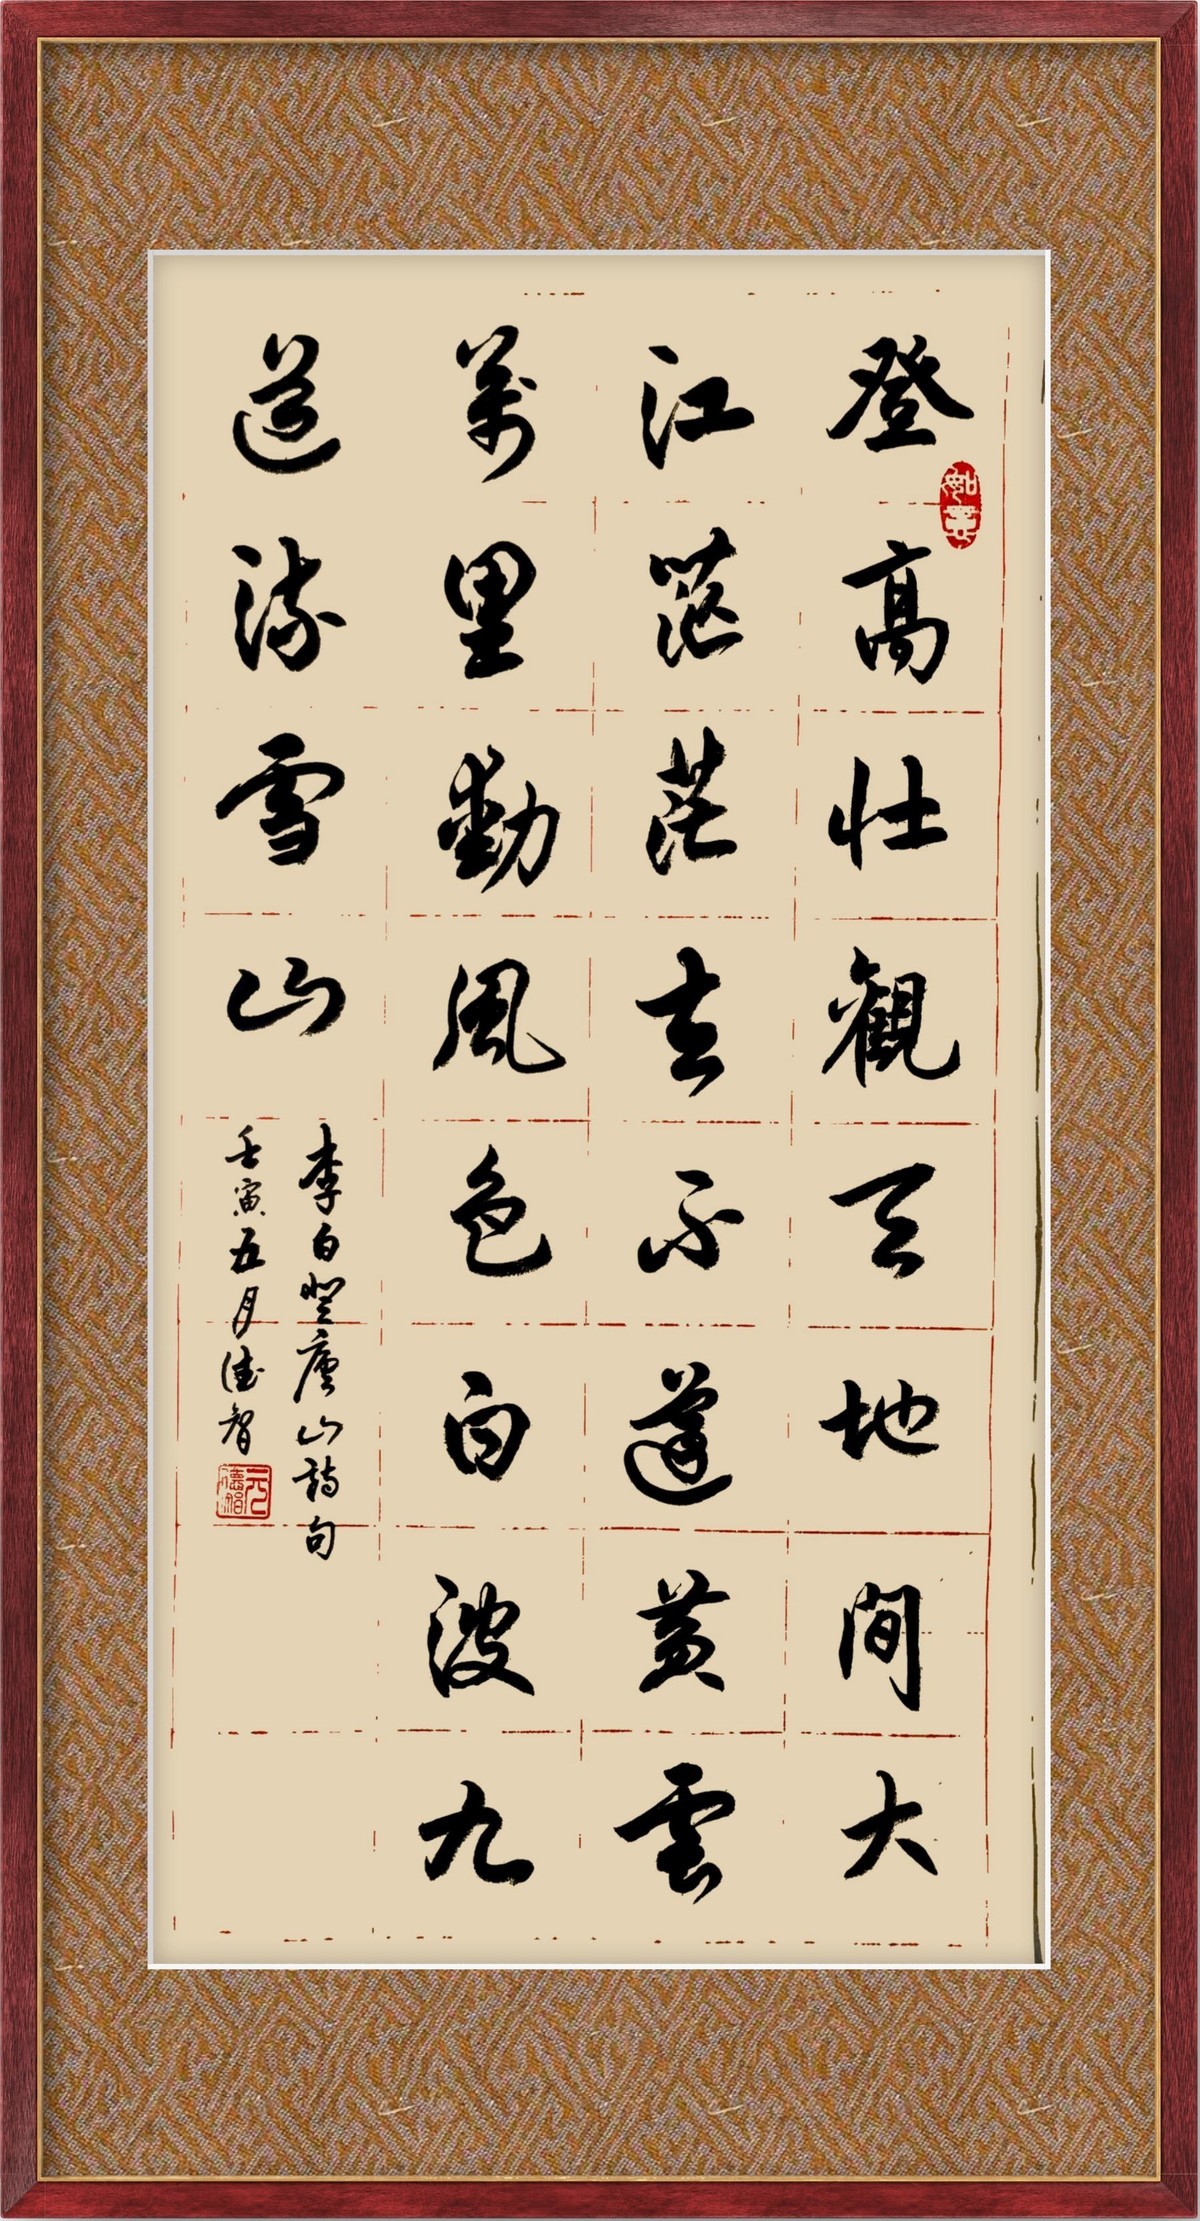 登高壯觀天地間大
江茫茫去不還黃雲
萬里動風色白波九
道流雪山
李白登廬山詩句
壬寅五月德智
如意
元德智